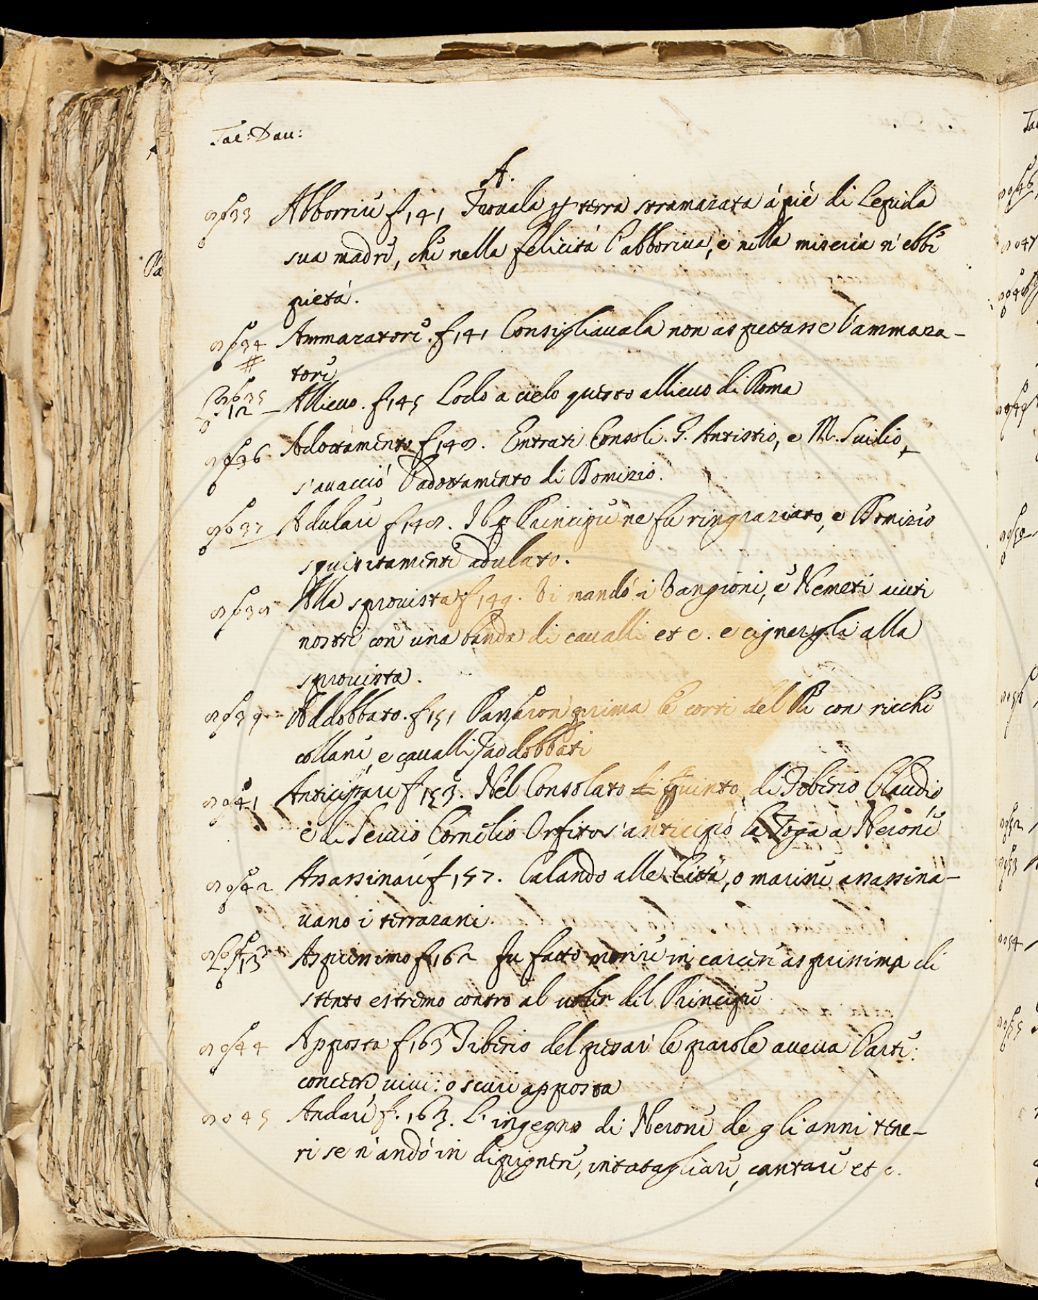 Tac: Dav:
A.
Abborrire f 141 Tirovala per terra stramazata á pié di Lepida
sua madre, che nella felicità l'abboriva, e nella miseria n'ebbe
pietá.
Ammazatore. f 141 Consigliavala non aspettasse l'ammaza-
tore
Allievo. f 145 Lodò a cielo questo allievo di Roma
Adottamento f 148. Entrati Consoli G. Antistio, e M. Suilio,
s'avacció l'adottamento di Domizio.
Adulare f 148. Il Principe ne fu ringraziato, e Domizio
squisitamente adulato.
Alla sprovista f 149. Si mandó i Vangioni, e Nemeti aiuti
nostri con una banda di cavalli et c. e cignergli alla
sprovista.
Addobbato. f 151 prima la corte del Re con ricche
collane, e cavalli addobbati
Anticipare f 153. Nel Consolato quinto di Tiberio Claudio
e di Servio Cornelio Orfito s'anticipó la Toga a Nerone
Assassinare f 157. Calando alle Città, o marine assassina-
vano i terrazani
Asprissimo f 162 fu fatto morire in carcere asprissima di
stento estremo contro al voler del Principe
Apposta f 163 Tiberio del pesar le parole aveva l'arte:
concetti vivi: o scuri apposta
Andare f. 163. L'ingegno di Nerone da gli anni tene-
ri se n'andó in dipignere, intatagliare, cantare et c.